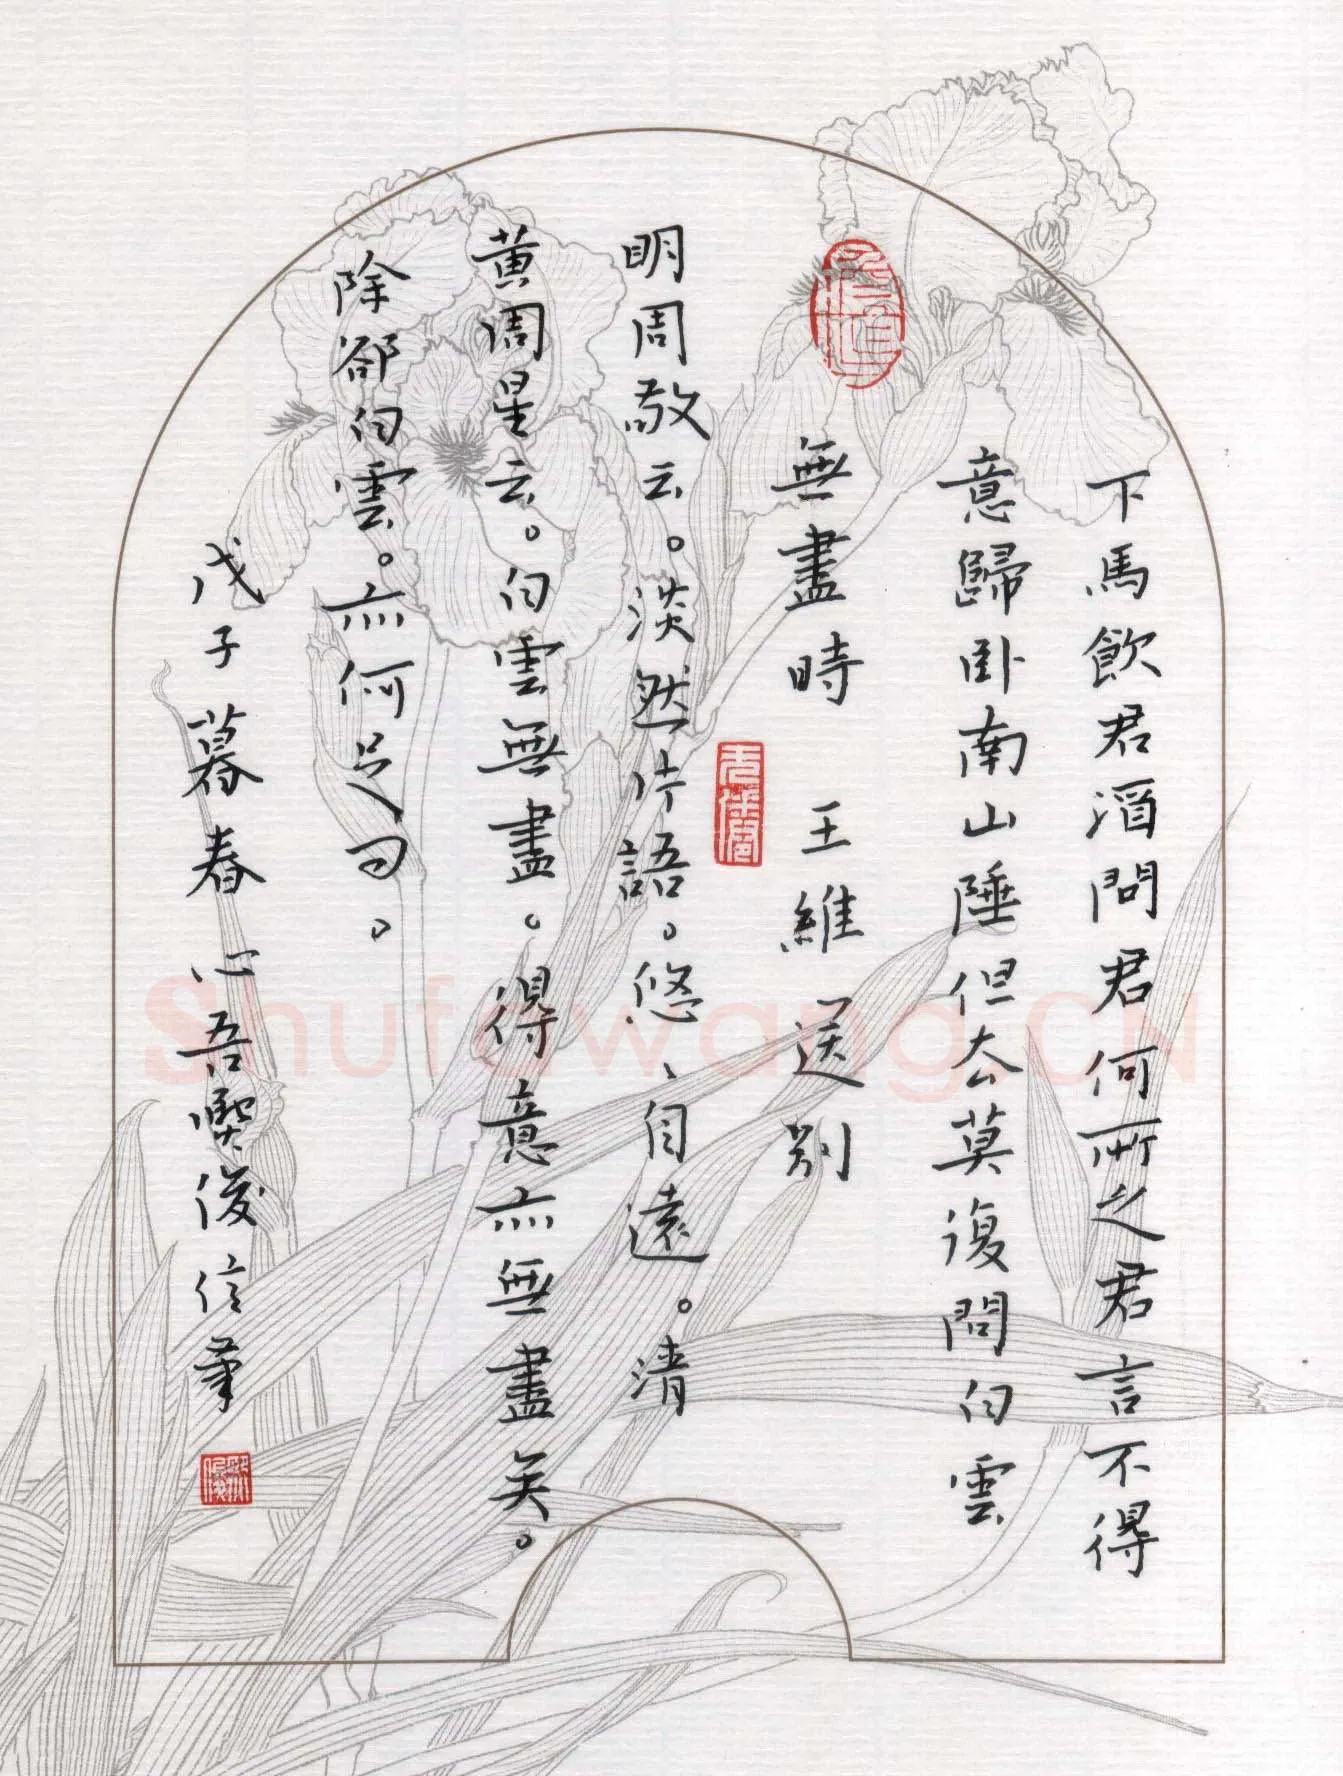 下馬飲君酒問君何所之君言不得
意歸卧南山陲但去莫復問白雲
無盡時　王維送别
明周敬云。淡然片語。悠、自遠。清
黄周星云。白雲無盡。得意亦無盡矣。
除卻白雲。亦何足問。
戊子暮春心吾熙俊信筆
Shufawang.CN